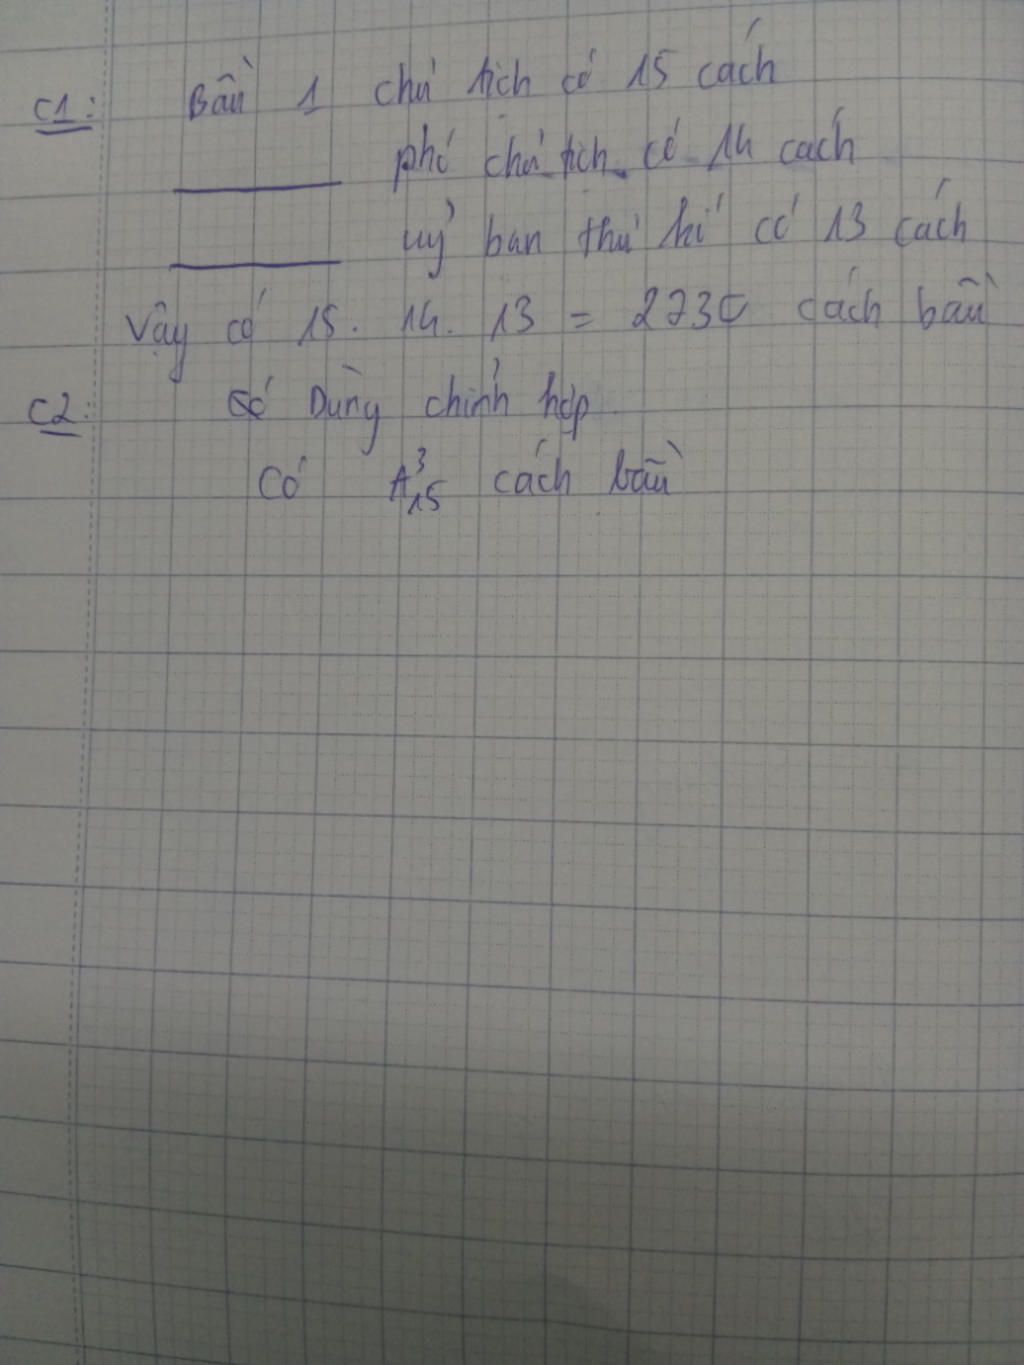 C1: Bầu 1 chủ tịch có 15 cách
phó chủ tịch có 14 cách
uỷ ban thư kí có 13 cách
Vậy có 15. 14. 13 = 2730 cách bầu
C2: Dùng chỉnh hợp
Có A³₁₅ cách bầu